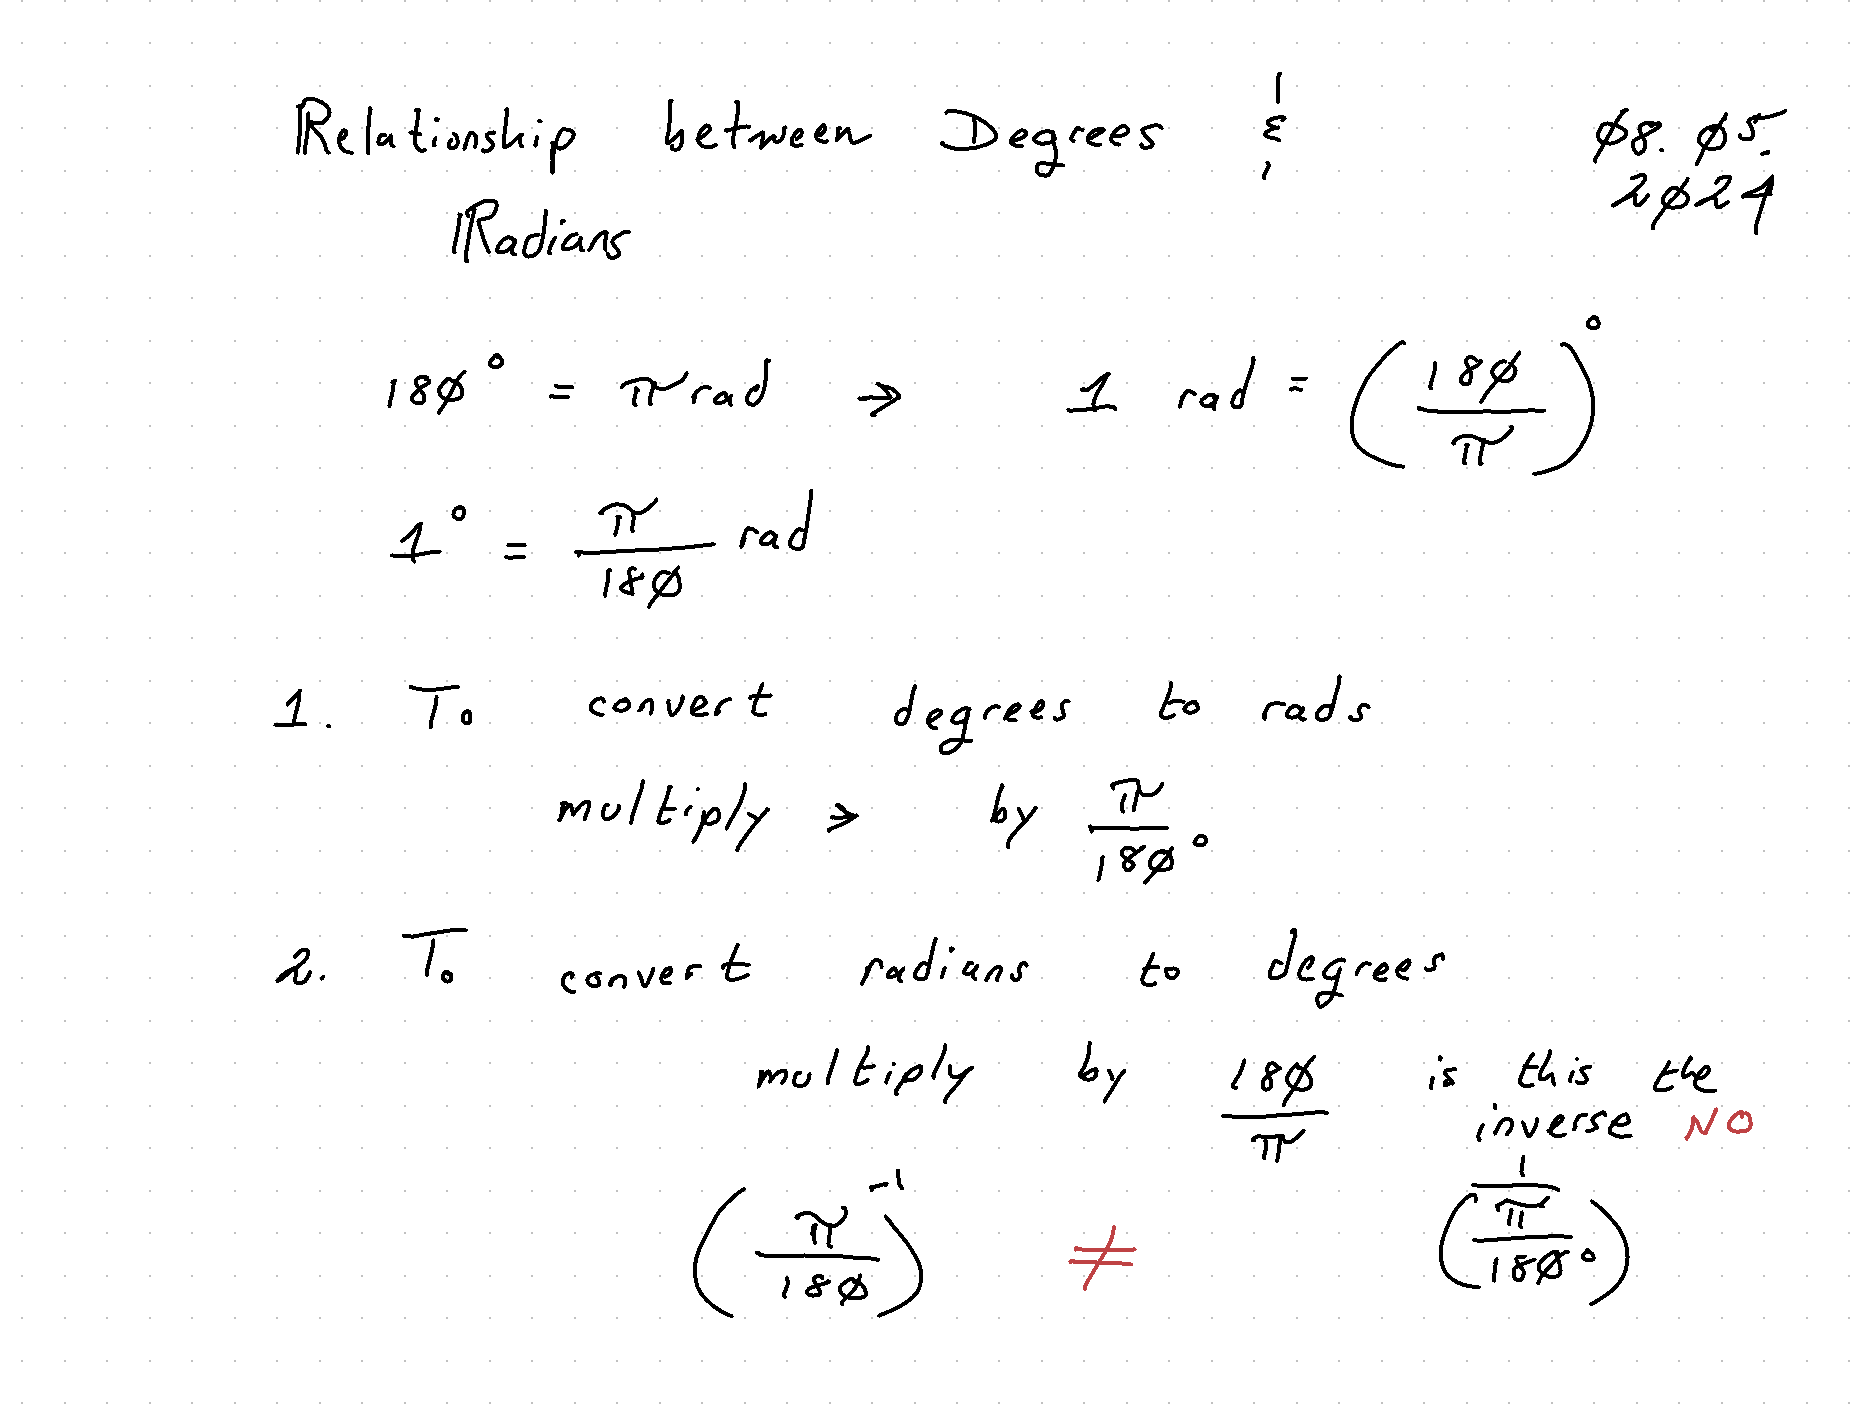 Relationship between Degrees &
08.05.
2024
Radians
180° = π rad → 1 rad = (180/π)°
1° = π/180 rad
1. To convert degrees to rads
multiply → by π/180°
2. To convert radians to degrees
multiply by 180/π is this the
inverse NO
(π/180)⁻¹ ≠ 1/(π/180°)